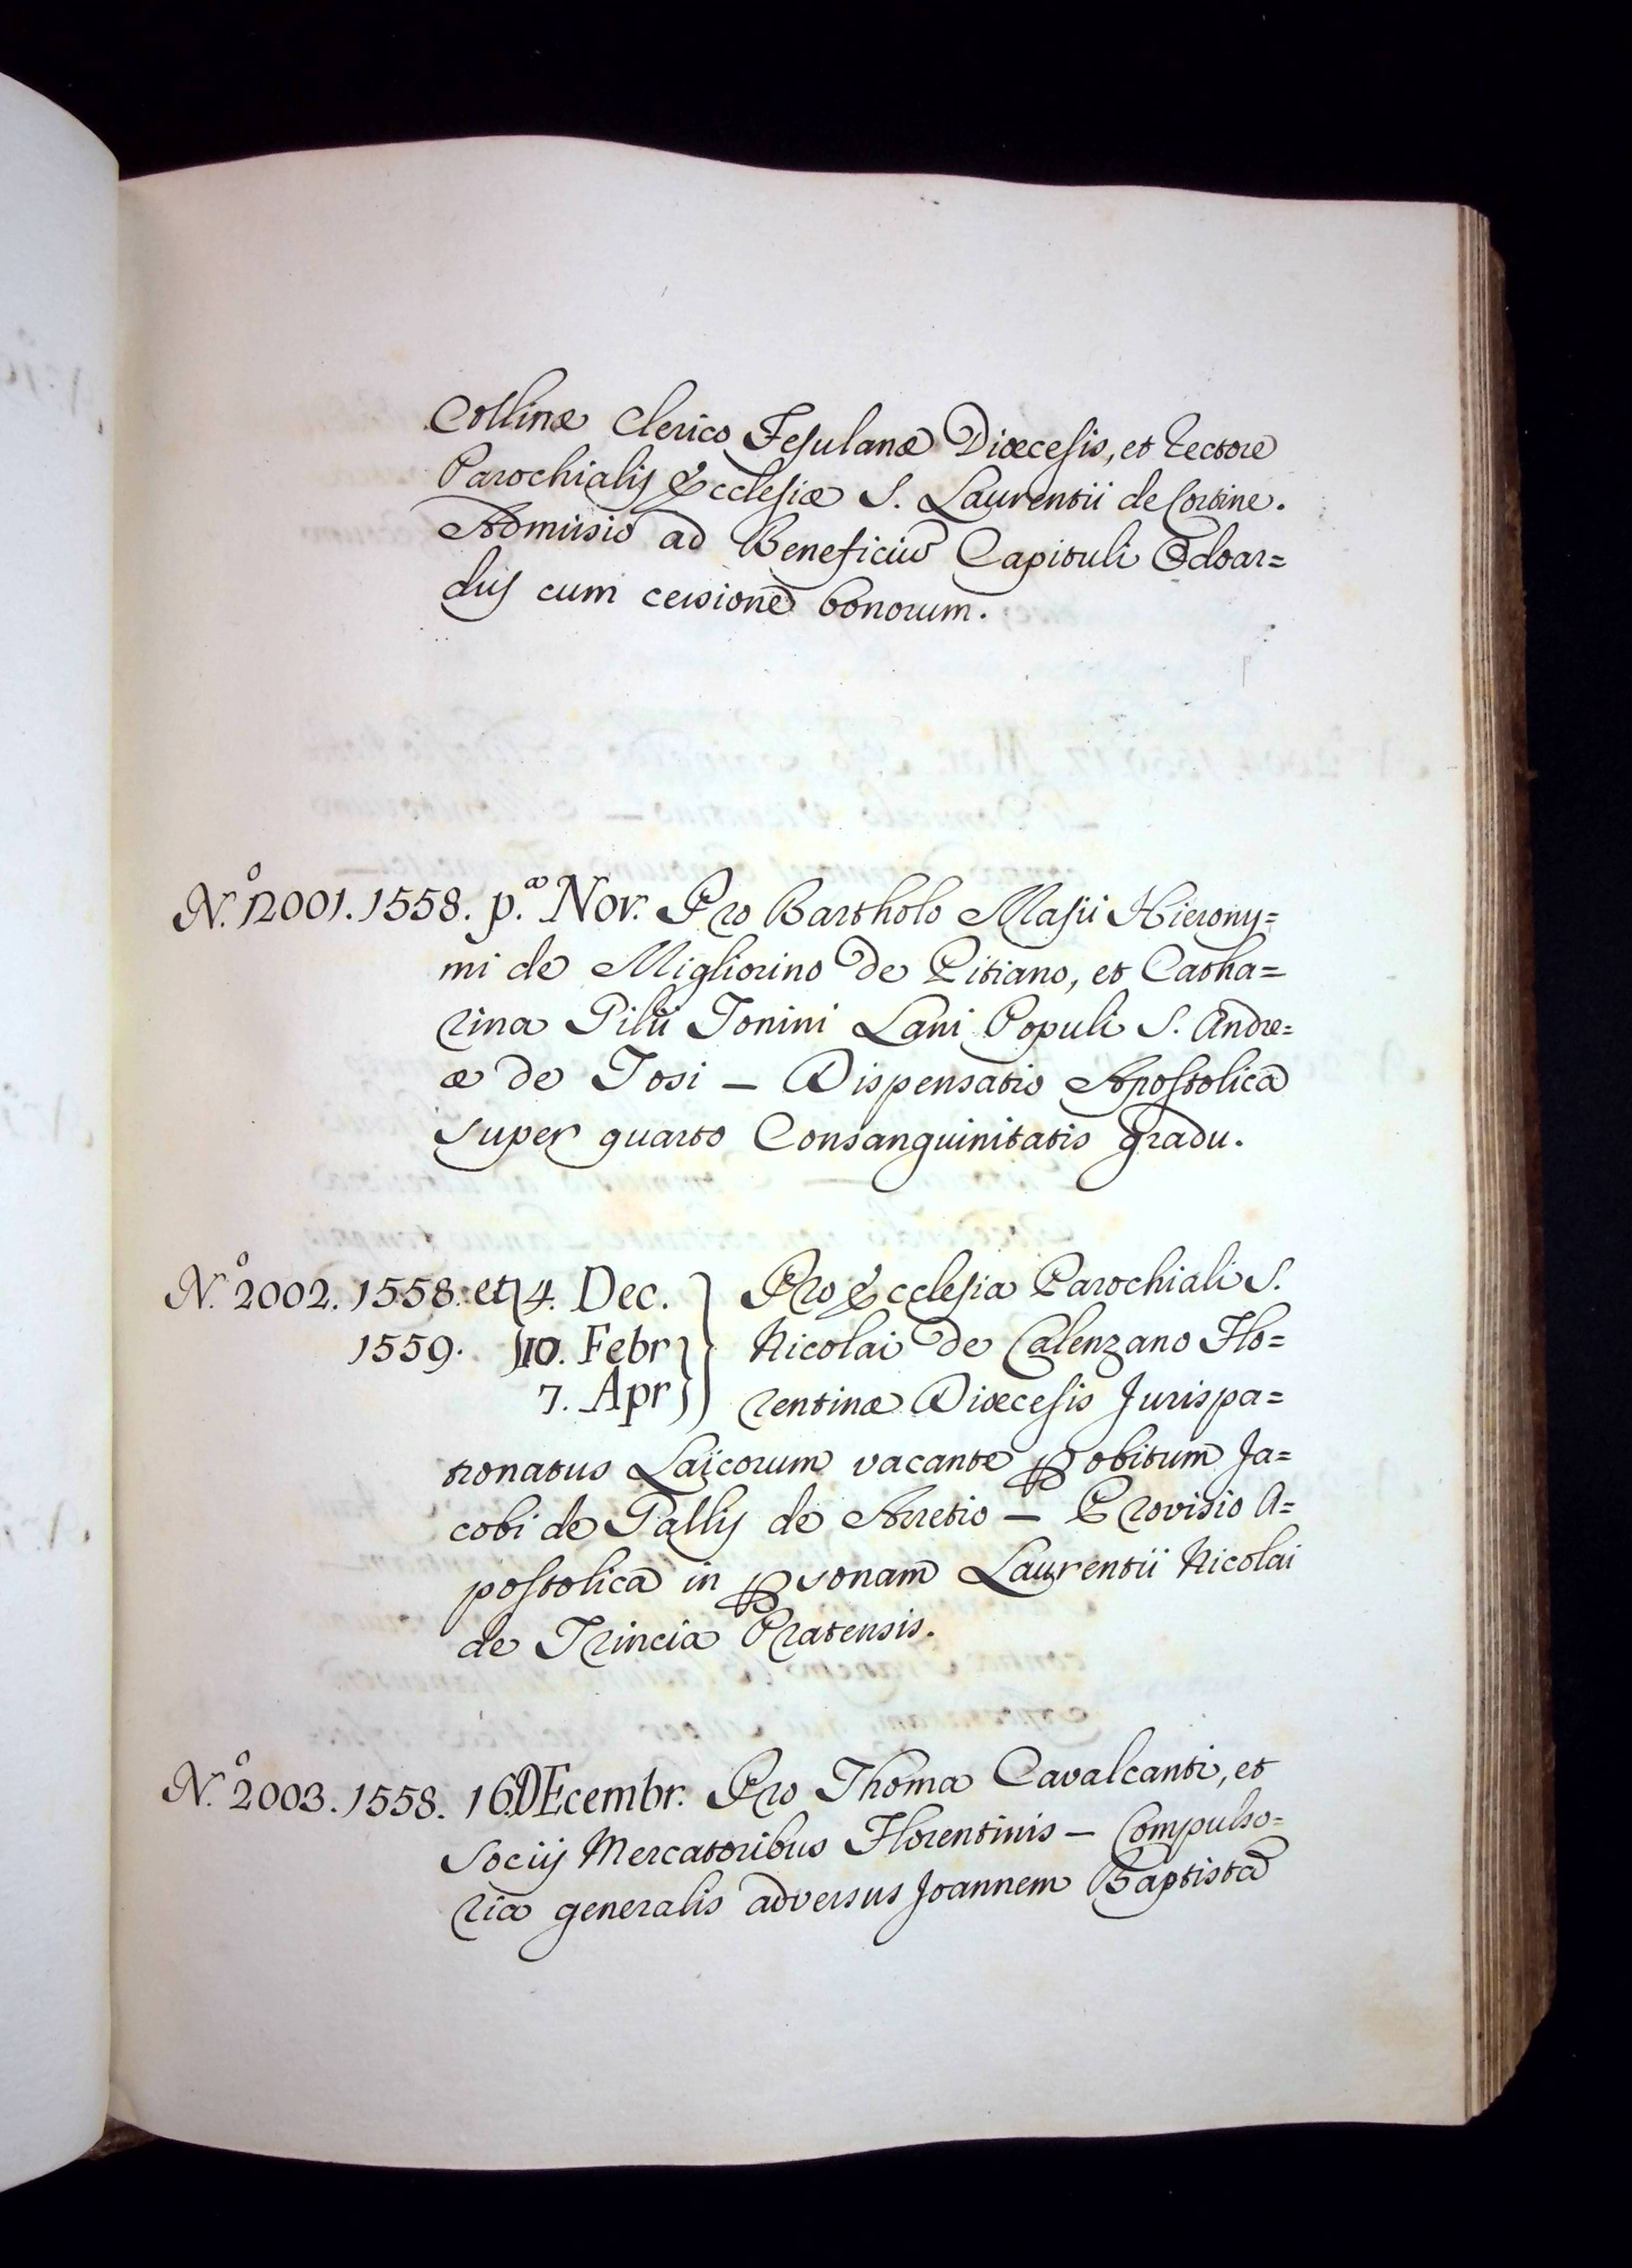 Collinæ Clerico Fesulanæ Diœcesis, et Rectore
Parochialis Ecclesiæ S. Laurentii de Cortine.
Admissio ad Beneficiũ Capituli Edoar=
dus cum cessione bonorum.
N.º 2001. 1558. p.ª Nov. Pro Bartholo Masii Hierony=
mi de Migliorino de Pitiano, et Catha=
rina Pilii Tonini Lani Populi S. Andre=
æ de Tosi — Dispensatio Apostolica
super quarto Consanguinitatis gradu.
N.º 2002. 1558. et 4. Dec. Pro Ecclesia Parochiali S.
1559. 10. Febr Nicolai de Calenzano Flo=
7. Apr rentinæ Diœcesis Jurispa=
tronatus Laicorum vacante p obitum Ja=
cobi de Gallis de Arretio — Provisio A=
postolica in psonam Laurentii Nicolai
de Trincia Pratensis.
N.º 2003. 1558. 16 DEcembr. Pro Thoma Cavalcanti, et
Sociis Mercatoribus Florentinis — Compulso=
ria generalis adversus Joannem Baptistã